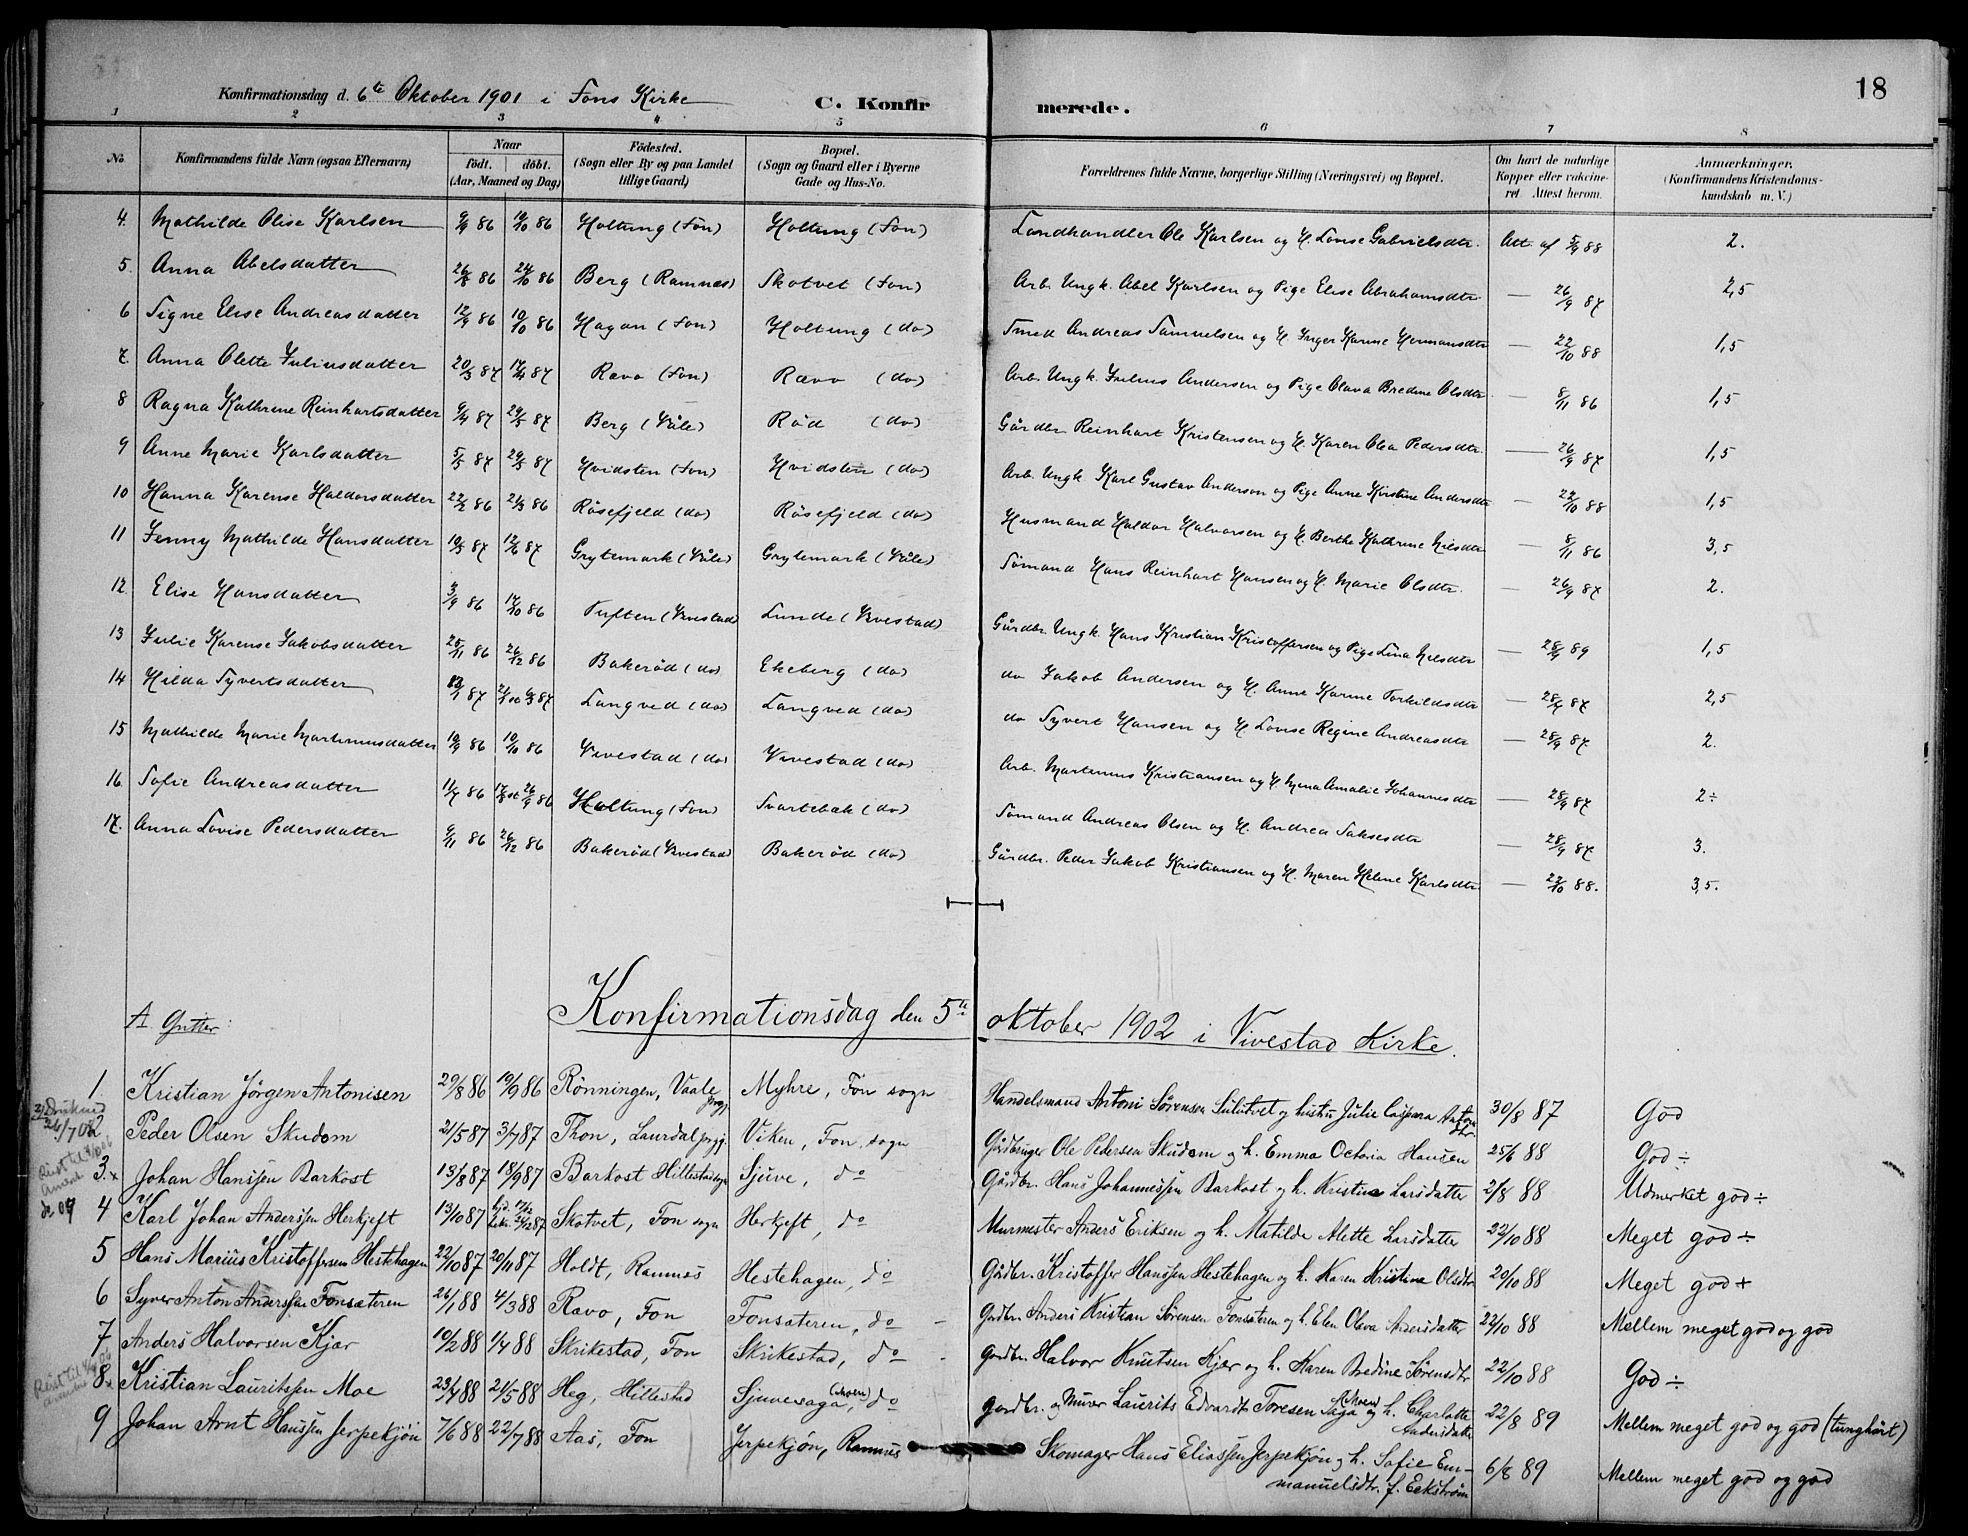 18
Konfirmationsdag d. 6te Oktober 1901 i Fons Kirke C. Konfirmerede.
1 2 3 4 5 6 7 8
No. Konfirmandens fulde Navn (ogsaa Efternavn) Naar födt. döbt. (Aar, Maaned og Dag) Födested. (Sogn eller By og paa Landet tillige Gaard) Bopæl. (Sogn og Gaard eller i Byerne Gade og Hus-No. Forældrenes fulde Navne, borgerlige Stilling (Næringsvei) og Bopæl. Om havt de naturlige Kopper eller vakcineret. Attest herom. Anmærkninger. (Konfirmandens Kristendomskundskab m. V.)
4. Mathilde Olise Karlsen 9/9 86 10/10 86 Holtung (Fon) Holtung (Fon) Landhandler Ole Karlsen og H. Lovise Gabrielsdtr. Att. af 5/9 88 2.
5. Anna Abelsdatter 26/8 86 24/10 86 Berg (Ramnæs) Skotvet (Fon) Arb. Ungk. Abel Karlsen og Pige Elise Abrahamsdtr. — 26/9 87 2,5
6 Signe Elise Andreasdatter 12/9 86 10/10 86 Hagan (Fon) Holtung (do) Smed Andreas Samuelsen og H. Inger Karine Hermansdtr — 22/10 88 1,5
7. Anna Olette Juliusdatter 20/3 87 17/4 87 Ravo (Fon) Rævo (do) Arb. Ungk. Julius Andersen og Pige Olava Bredine Olsdtr. — 8/11 86 1,5
8 Ragna Kathrine Reinhartsdatter 9/4 87 29/5 87 Berg (Våle) Rød (do) Gårdbr Reinhart Kristensen og H. Karen Olea Pedersdtr. — 26/9 87 1,5
9 Anne Marie Karlsdatter 5/5 87 29/5 87 Hvidsten (Fon) Hvidsten (do) Arb. Ungk Karl Gustav Anderson og Pige Anne Kirstine Andersdtr — 22/10 88 1,5
10 Hanna Karense Haldorsdatter 22/2 86 21/3 86 Råsefjeld (do) Råsefjeld (do) Husmand Haldor Halvorsen og H. Berthe Kathrine Nilsdtr — 8/11 86 3,5
11 Jenny Mathilde Hansdatter 10/5 87 12/6 87 Grytemark (Våle) Grytemark (Våle) Sømand Hans Reinhart Hansen og H. Marie Olsdtr. — 26/9 87 2.
12. Elise Hansdatter 3/9 86 17/10 86 Tuften (Vivestad) Lunde (Vivestad) Gårdbr. Ungk. Hans Kristian Kristoffersen og Pige Lina Nilsdtr — 28/9 89 1,5
13 Julie Karense Jakobsdatter 25/11 86 26/12 86 Bakerød (do) Ekeberg (do) do Jakob Andersen og H. Anne Karine Torkildsdtr — 28/9 87 2,5
14 Hilda Syvertsdatter Langved (do) Langved (do) do Syvert Hansen og H. Lovise Regine Andreasdtr — 28/9 87 2.
15 Mathilde Marie Martinusdatter 10/9 86 10/10 86 Vivestad (do) Vivestad (do) Arb. Martinius Kristiansen og H. Mina Amalie Johannesdtr — 28/9 87 2÷
16 Sofie Andreasdatter 11/7 86 Holtung (Fon) Svartebæk (do) Sømand Andreas Olsen og H. Andrea Saksesdtr — 28/9 87 3.
17. Anna Lovise Pedersdatter 9/11 86 26/12 86 Bakerød (Vivestad) Bakerød (do) Gårdbr. Peder Jakob Kristiansen og H. Maren Helene Karlsdtr — 22/10 88. 3,5.
Konfirmationsdag den 5te oktober 1902 i Vivestad Kirke.
A Gutter:
1 Kristian Jörgen Antonisen 29/8 86 19/9 86 Rönningen, Vaale prgj. Myhre, Fon sogn Handelsmand Antoni Sörensen Sulutvet og hustru Julie Caspara Antonsdtr 30/8 87 God
2 Peder Olsen Skudem 21/5 87 3/7 87 Thon, Laurdal prgj. Viken, Fon sogn Gårdbruger Ole Pedersen Skudem og h. Emma Octovia Hansen 25/6 88 God ÷
3. x Johan Hanssen Barkost 13/8 87 18/9 87 Barkost Hillestad sogn Sjuve, do Gårdbr. Hans Johannessen Barkost og h. Kristine Larsdatter 2/8 88 Udmerket god ÷
4 Karl Johan Anderssen Herkjeft 13/10 87 Skotvet, Fon sogn Herkjeft, do Murmester Anders Eriksen og h. Matilde Alette Larsdatter 22/10 88 Meget god ÷
5 Hans Marius Kristoffersen Hestehagen 22/10 87 20/11 87 Holdt, Ramnes Hestehagen, do Gårdbr. Kristoffer Hanssen Hestehagen og h. Karen Kristine Olsdtr 20/10 88 Meget god +
6 Syver Anton Anderssen Fonsæteren 26/1 88 4/3 88 Ravo, Fon Fonsæteren, do Gårdbr. Anders Kristian Sörensen Fonsæteren og h. Elen Oleva Andersdatter 22/10 88 Mellem meget god og god
7 Anders Halvorsen Kjær 10/2 88 1/4 88 Skrikestad, Fon Skrikestad, do Gårdbr. Halvor Knutsen Kjær og h. Karen Bredine Sörensdtr 22/10 88 God ÷
8. Kristian Lauritssen Moe 23/4 88 21/5 88 Heg, Hillestad Sjuvesaga, (Moen) do Gårdbr. og Murer Laurits Edvardt Toresen Saga (Moen) og h. Charlotte Andersdatter 22/8 89 Mellem meget god og god (tunghört)
9 Johan Arnt Hanssen Jerpekjön 7/6 88 22/7 88 Aas, Fon Jerpekjön, Ramnes Skomager Hans Eliassen Jerpekjön og h. Sofie Emmanuelsdtr. f. Eckström 6/8 89 Mellem meget god og god